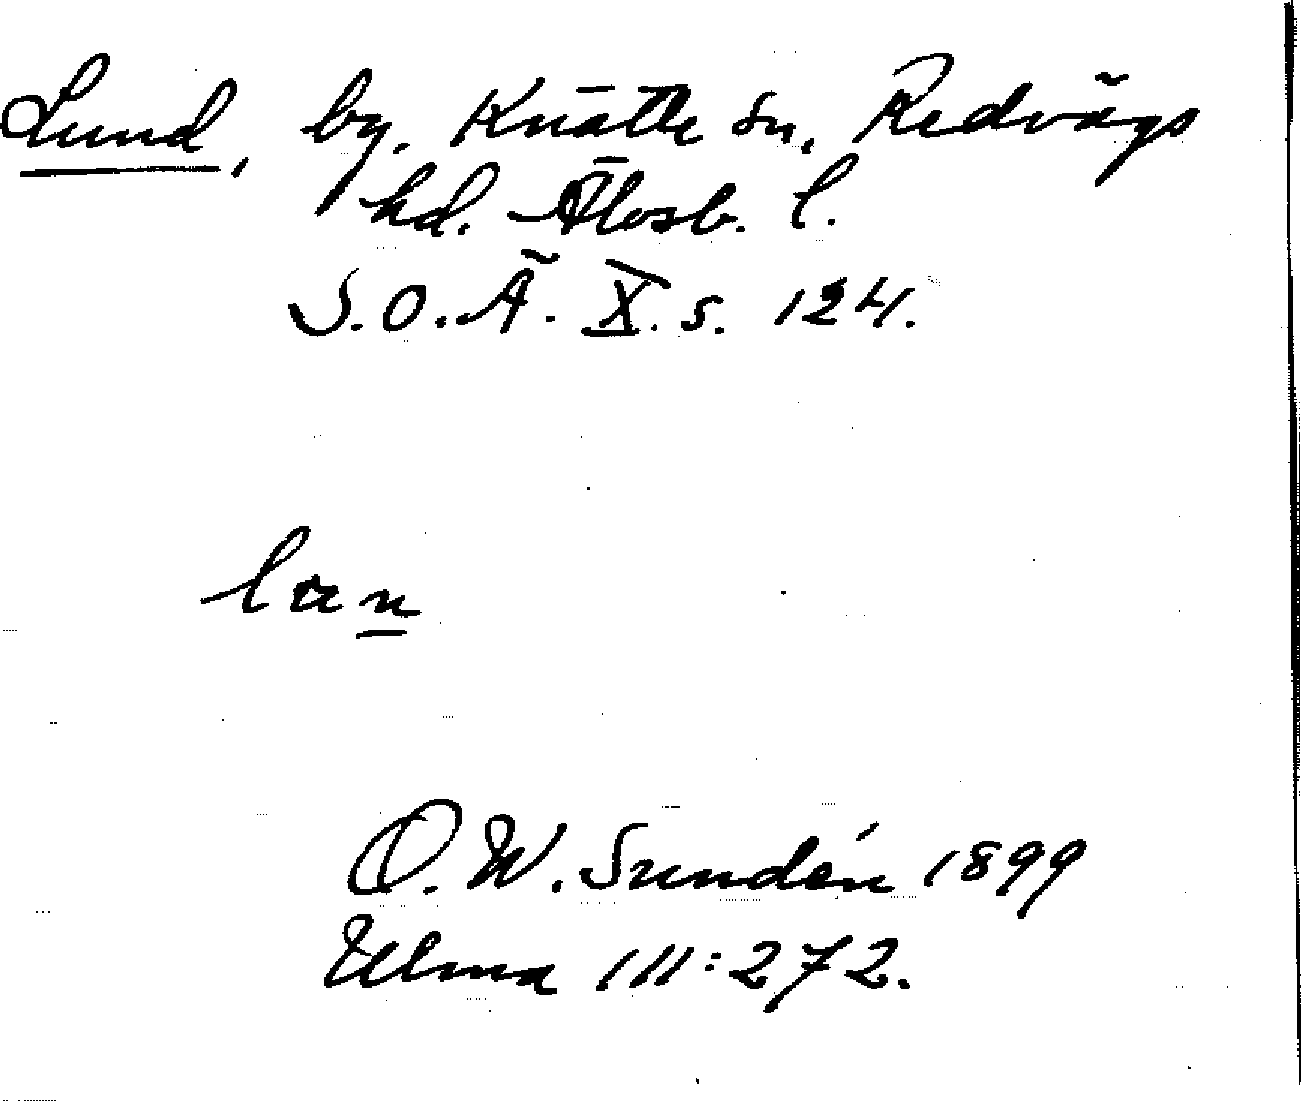 Lund, by, Knätte sn, Redvägs
hd. Älvsb. l.
S.O.Ä. X. s. 124.
O.W. Sundén 1899
Ulma 111:272.